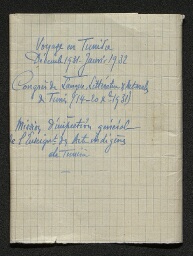 Voyage en Tunisie
Décembre 1931 - Janvier 1932
Congrès de Langue, Littérature & Arts arabes
de Tunis (14-20 Xbre 1931)
Mission d'inspection générale
de l'Enseignt des Arts indigènes
de Tunisie